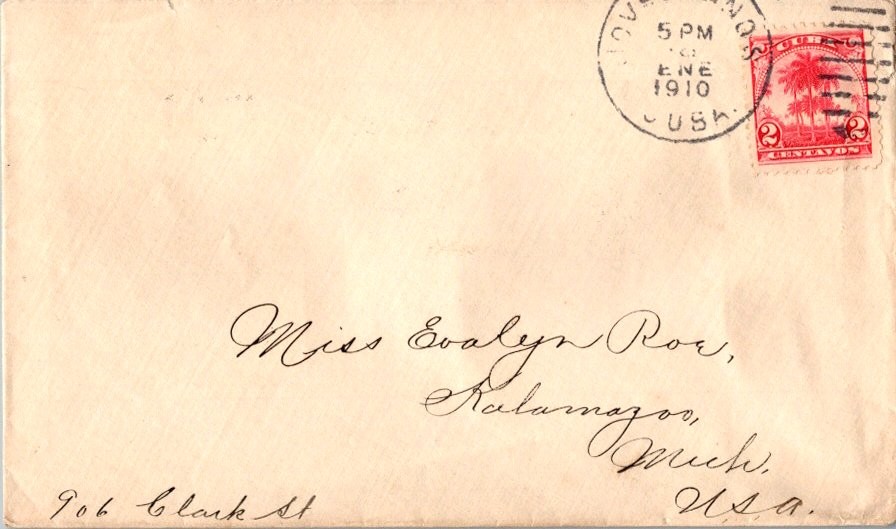 5 PM
ENE
1910
CUBA.
CUBA
2 2
CENTAVOS
Miss Evalyn Roe,
Kalamazoo,
Mich.
U.S.A.
906 Clark St